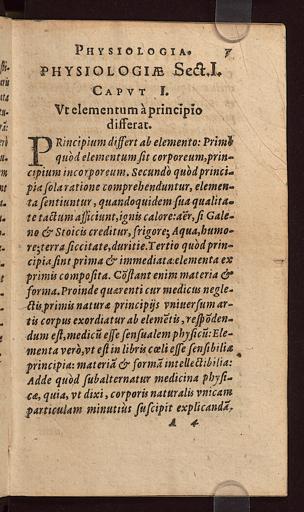 PHYSIOLOGIA. 7
PHYSIOLOGIÆ Sect. I.
CAPVT I.
Vt elementum à principio
differat.
PRincipium differt ab elemento: Primò
quòd elementum sit corporeum, prin-
cipium incorporeum. Secundò quòd princi-
pia sola ratione comprehenduntur, elemen-
ta sentiuntur, quandoquidem sua qualita-
te tactum afficiunt, ignis calore: aër, si Gale-
no & Stoicis creditur, frigore; Aqua, humo-
re; terra siccitate, duritie. Tertio quòd prin-
cipia sint prima & immediata: elementa ex
primis composita. Cõstant enim materia &
forma. Proinde quærenti cur medicus negle-
ctis primis naturæ principijs vniuersum ar-
tis corpus exordiatur ab elemẽtis, respõden-
dum est, medicũ esse sensualem physicũ: Ele-
menta verò, vt est in libris cœli esse sensibilia
principia: materiã & formã intellectibilia:
Adde quòd subalternatur medicina physi-
cæ, quia, vt dixi, corporis naturalis vnicam
particulam minutius suscipit explicandã,
A 4